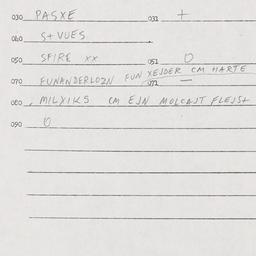 030 PASXE 031 +
040 S+VUES
050 SFIRE XX 051 O
070 FUNANDERLOZN FUN XEJDER CM HARTE
071 —
080 MILXIKS CM EJN MOLCAJT FLEJS+
090 O